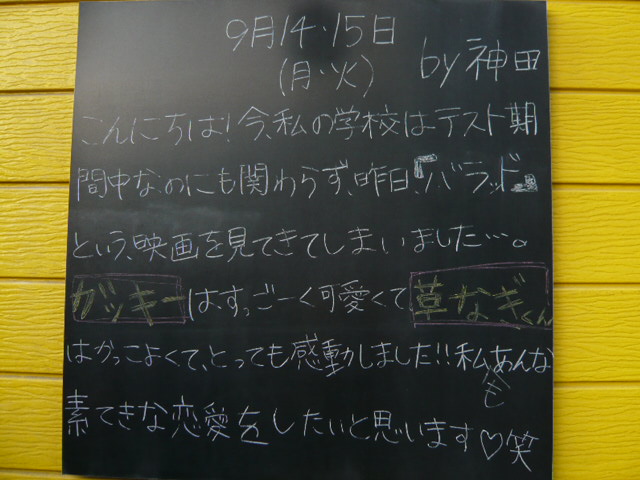 9月14・15日
(月・火) by 神田
こんにちは!今、私の学校はテスト期
間中なのにも関わらず、昨日、『バラッド』
という、映画を見てきてしまいました…。
ガッキーは、すっごーく可愛くて草なぎくん
はかっこよくて、とっても感動しました!!私もあんな
素てきな恋愛をしたいと思います♡笑